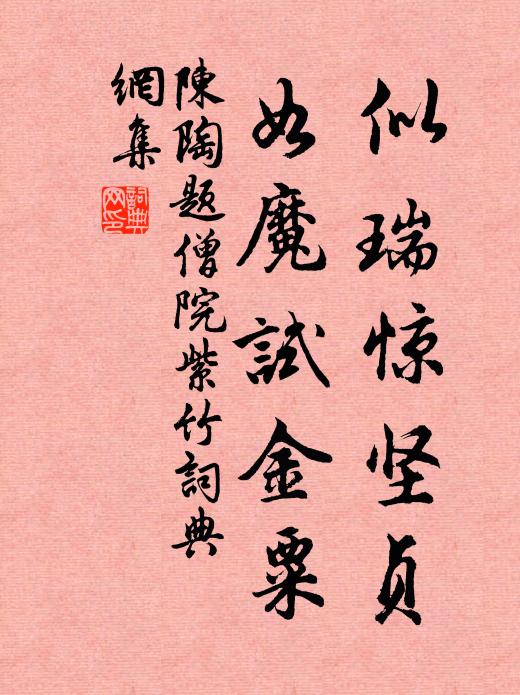 似瑞惊坚贞
如魔試金粟
陳陶题僧院紫竹詞典
網集
詞典網印